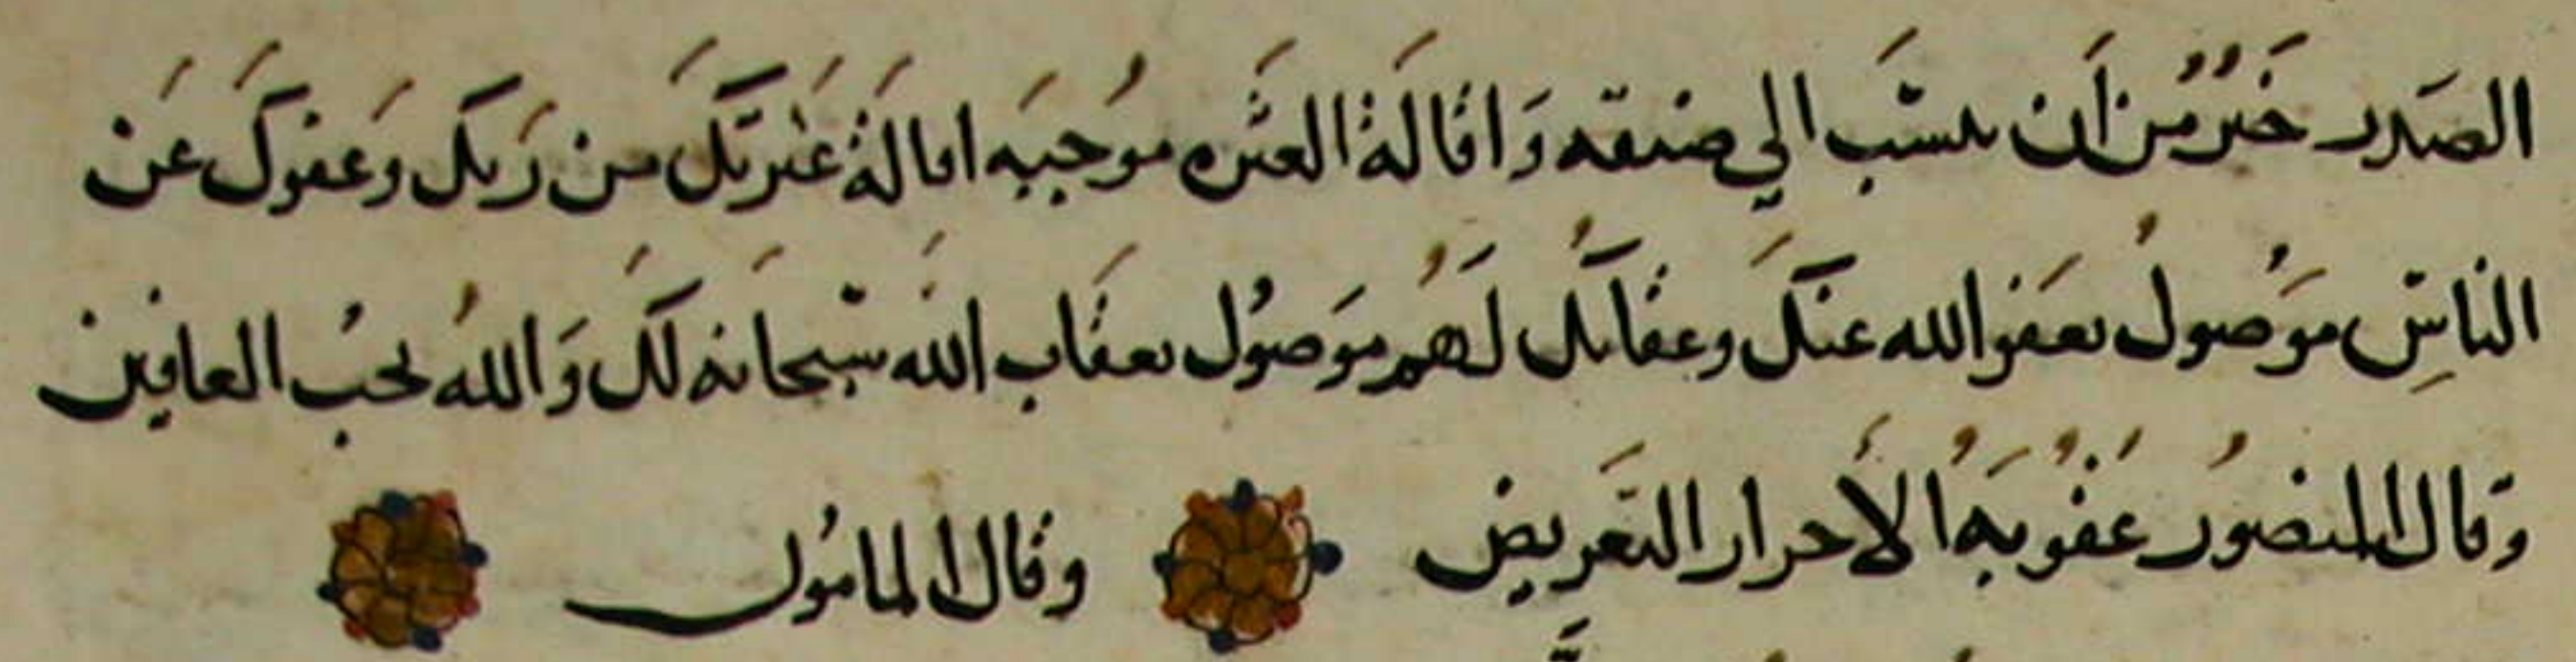 الصَدر خَيرٌ مُن اَن ينسَّب الي ضيقه وَاقالَة العثَره موُجبَه اقالَةُ عَثرتكَ من رَبكَ وَعفوكَ عَن
الناسِ موَصُولُ بعَفوالله عنكَ وعقابكُ لَهُم موَصوُل بعقَاب الله سبْحانه لكَ وَاللهُ يحبُ العافين
وَقال المنصوُر عَقُوبَهُ الأَحرار التعَريض
وقال المامُون